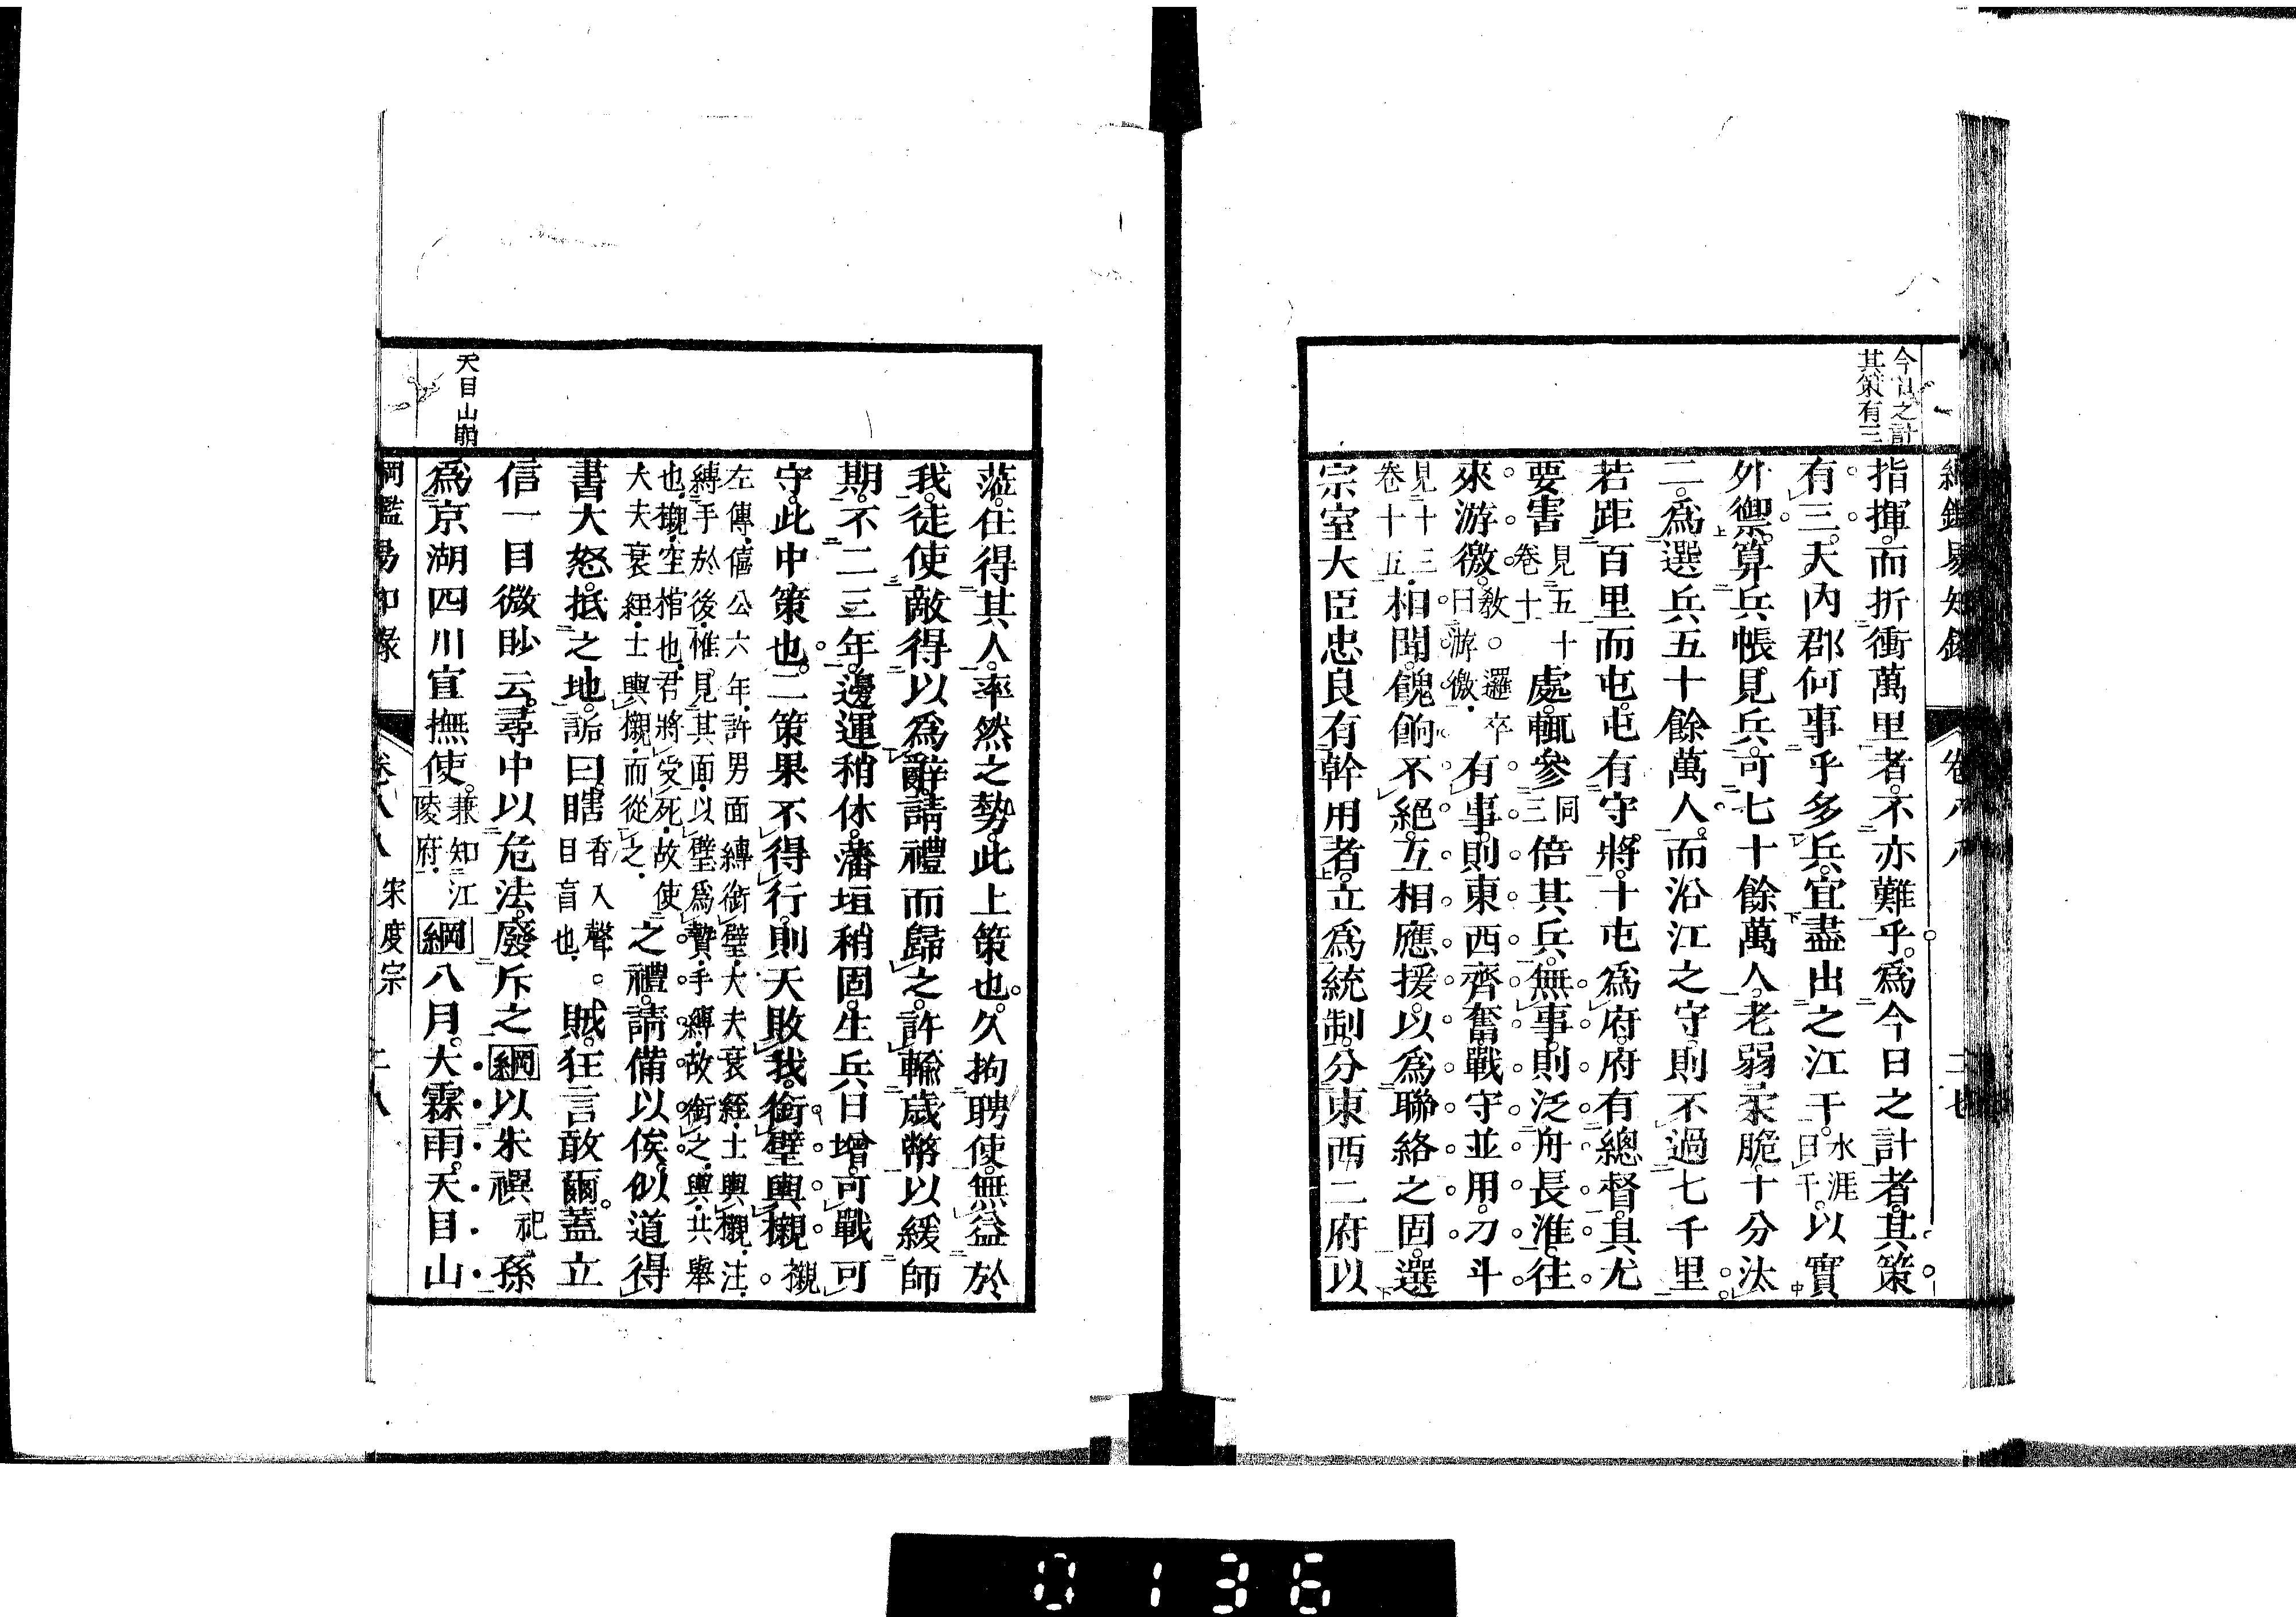 今日之計
其策有三
綱鑑易知錄 卷八八 二七
指揮而折衝萬里者不亦難乎爲今日之計者其策
有三夫內郡何事乎多兵宜盡出之江干水涯曰干以實
外禦算兵帳見兵可七十餘萬人老弱柔脆十分汰
二爲選兵五十餘萬人而沿江之守則不過七千里
若距百里而屯屯有守將十屯爲府府有總督其尤
要害見五十卷十處輒參同三倍其兵無事則泛舟長淮往
來游徼敎邏卒曰游徼有事則東西齊奮戰守並用刁斗
見十三卷十五相聞餽餉不絕互相應援以爲聯絡之固選
宗室大臣忠良有幹用者立爲統制分東西二府以
蒞任得其人率然之勢此上策也久拘聘使無益於
我徒使敵得以爲辭請禮而歸之許輸歲幣以緩師
期不二三年邊運稍休藩垣稍固生兵日增可戰可
守此中策也二策果不得行則天敗我銜璧輿櫬櫬
左傳僖公六年許男面縛銜璧大夫衰絰士輿櫬注
縛手於後惟見其面以璧爲贄手縛故銜之輿共舉
也櫬空棺也君將受死故使
大夫衰絰士輿櫬而從之
之禮請備以俟似道得
書大怒抵之地詬曰瞎香入聲目盲也賊狂言敢爾蓋立
信一目微眇云尋中以危法廢斥之綱以朱禩祀孫
爲京湖四川宣撫使兼知江陵府綱八月大霖雨天目山
天目山崩
綱鑑易知錄 卷八八 宋度宗 二八
0136